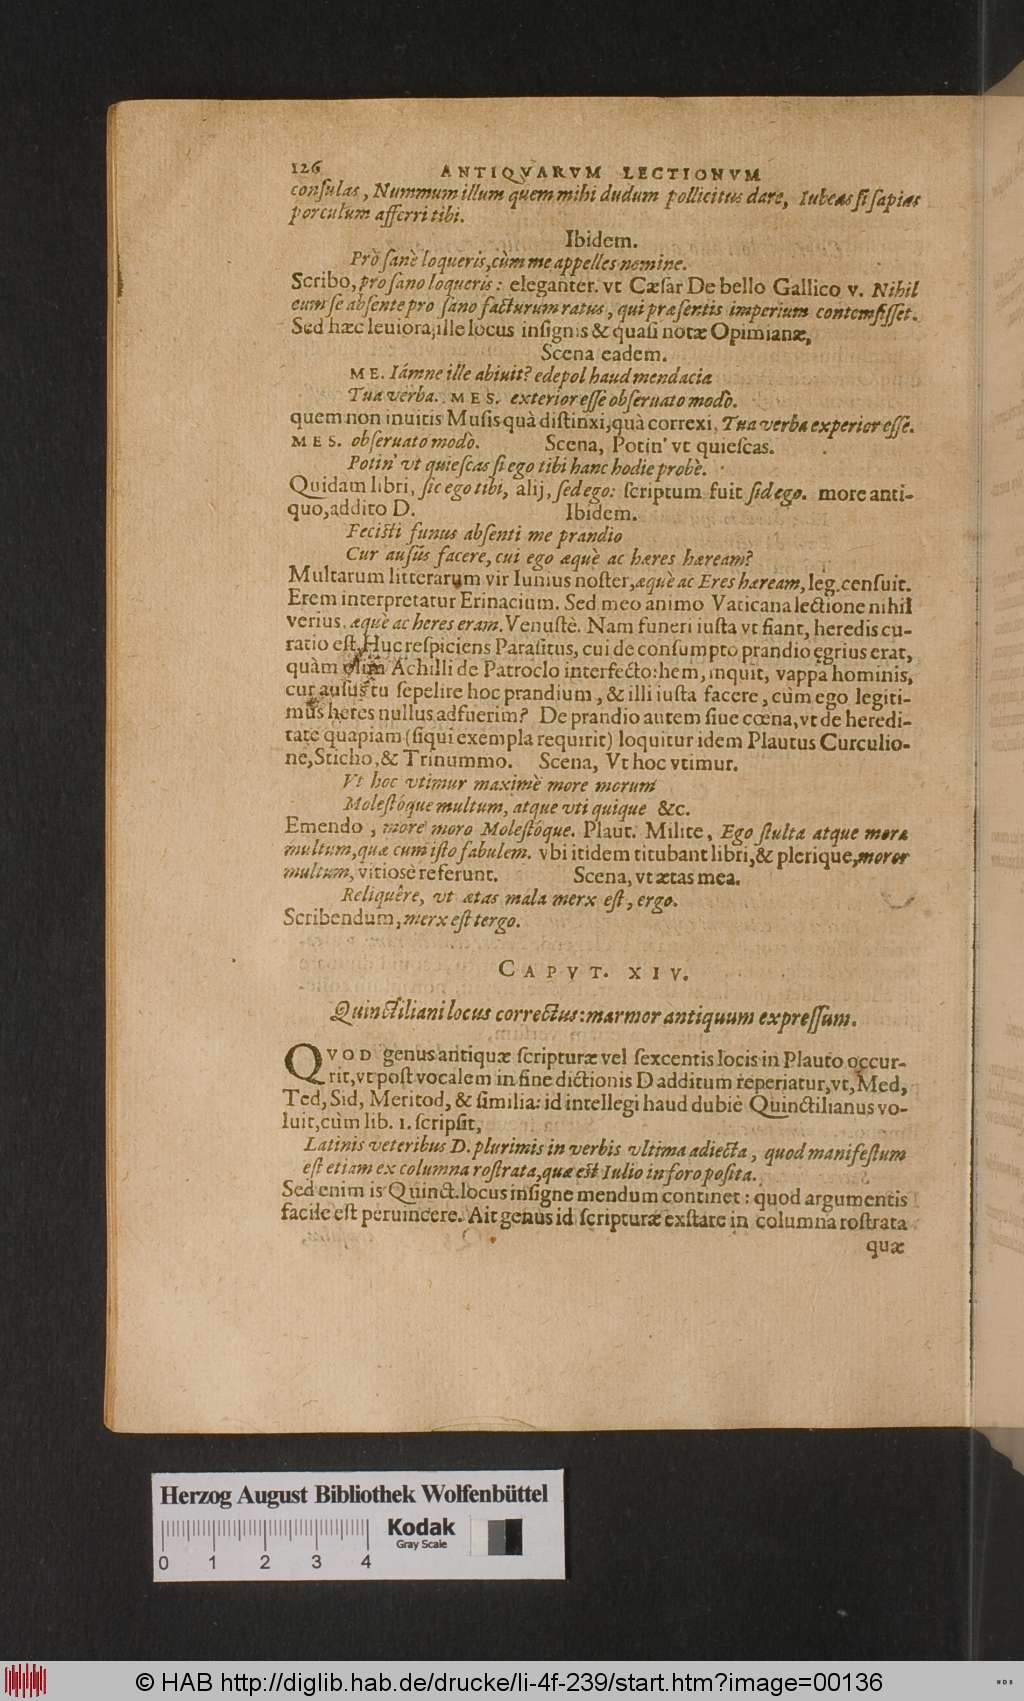 126 ANTIQVARVM LECTIONVM
consulas, Nummum illum quem mihi dudum pollicitus dare, Iubeas si sapias
porculum afferri tibi.
Ibidem.
Prò sanè loqueris, cùm me appelles nomine.
Scribo, pro sano loqueris: eleganter. vt Cæsar De bello Gallico v. Nihil
eum se absente pro sano facturum ratus, qui præsentis imperium contemsisset.
Sed hæc leuiora, ille locus insignis & quasi notæ Opimianæ,
Scena eadem.
ME. Iámne ille abiuit? edepol haud mendacia
Tua verba. MES. exterior esse obseruato modò.
quem non inuitis Musis quà distinxi, quà correxi, Tua verba experior esse.
MES. obseruato modò. Scena, Potin' vt quiescas.
Potin' vt quiescas si ego tibi hanc hodie probè.
Quidam libri, sic ego tibi, alij, sed ego: scriptum fuit sid ego. more anti-
quo, addito D. Ibidem.
Fecisti funus absenti me prandio
Cur ausus facere, cui ego æquè ac hæres hæream?
Multarum litterarum vir Iunius noster, æquè ac Eres hæream, leg. censuit.
Erem interpretatur Erinacium. Sed meo animo Vaticana lectione nihil
verius. æquè ac heres eram. Venustè. Nam funeri iusta vt fiant, heredis cu-
ratio est. Huc respiciens Parasitus, cui de consumpto prandio ęgrius erat,
quàm olim Achilli de Patroclo interfecto: hem, inquit, vappa hominis,
cur ausus tu sepelire hoc prandium, & illi iusta facere, cùm ego legiti-
mus heres nullus adfuerim? De prandio autem siue cœna, vt de heredi-
tate quapiam (siqui exempla requirit) loquitur idem Plautus Curculio-
ne, Sticho, & Trinummo. Scena, Vt hoc vtimur.
Vt hoc vtimur maximè more morum
Molestóque multum, atque vti quique &c.
Emendo, more moro Molestóque. Plaut. Milite, Ego stulta atque mora
multum, quæ cum isto fabulem. vbi itidem titubant libri, & plerique, moror
multum, vitiosè referunt. Scena, vt ætas mea.
Reliquêre, vt ætas mala merx est, ergo.
Scribendum, merx est tergo.
CAPVT. XIV.
Quinctiliani locus correctus: marmor antiquum expressum.
QVOD genus antiquæ scripturæ vel sexcentis locis in Plauto occur-
rit, vt post vocalem in fine dictionis D additum reperiatur, vt, Med,
Ted, Sid, Meritod, & similia: id intellegi haud dubiè Quinctilianus vo-
luit, cùm lib. 1. scripsit,
Latinis veteribus D. plurimis in verbis vltima adiecta, quod manifestum
est etiam ex columna rostrata, quæ est Iulio in foro posita.
Sed enim is Quinct. locus insigne mendum continet: quod argumentis
facile est peruincere. Ait genus id scripturæ exstare in columna rostrata
quæ
Herzog August Bibliothek Wolfenbüttel
Kodak
Gray Scale
0 1 2 3 4
© HAB http://diglib.hab.de/drucke/li-4f-239/start.htm?image=00136